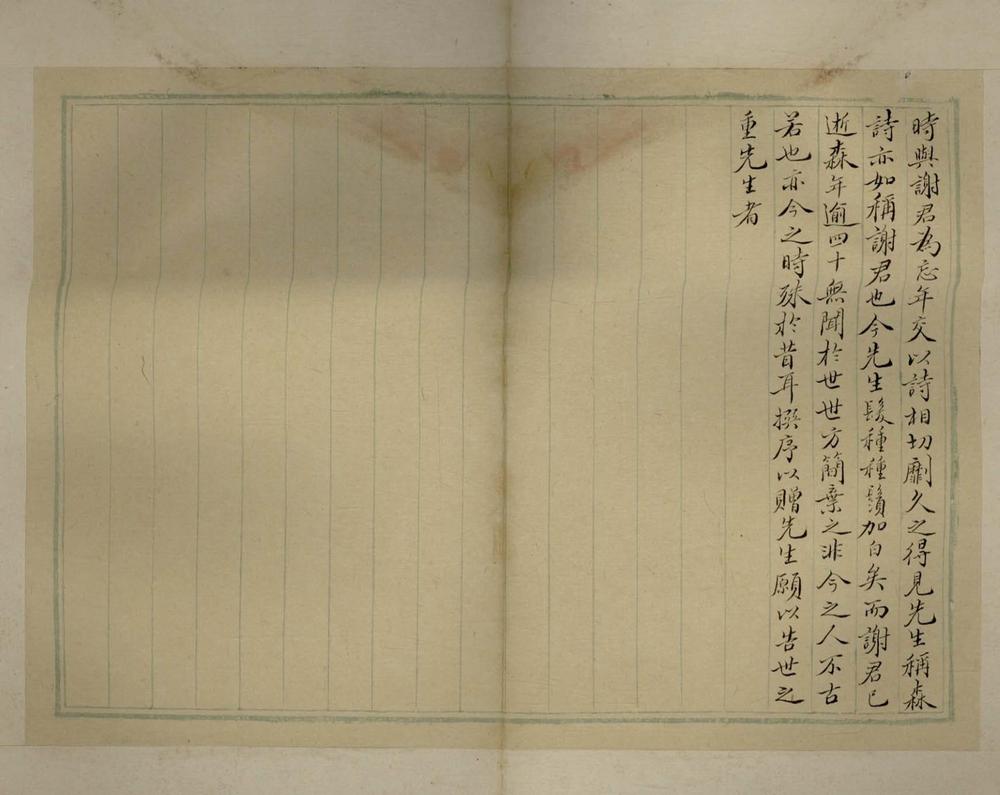 時與謝君為忘年交以詩相切劘久之得見先生稱森
詩亦如稱謝君也今先生髮種種鬚加白矣而謝君已
逝森年逾四十無聞於世世方簡棄之非今之人不古
若也亦今之時殊於昔耳撰序以贈先生願以告世之
重先生者